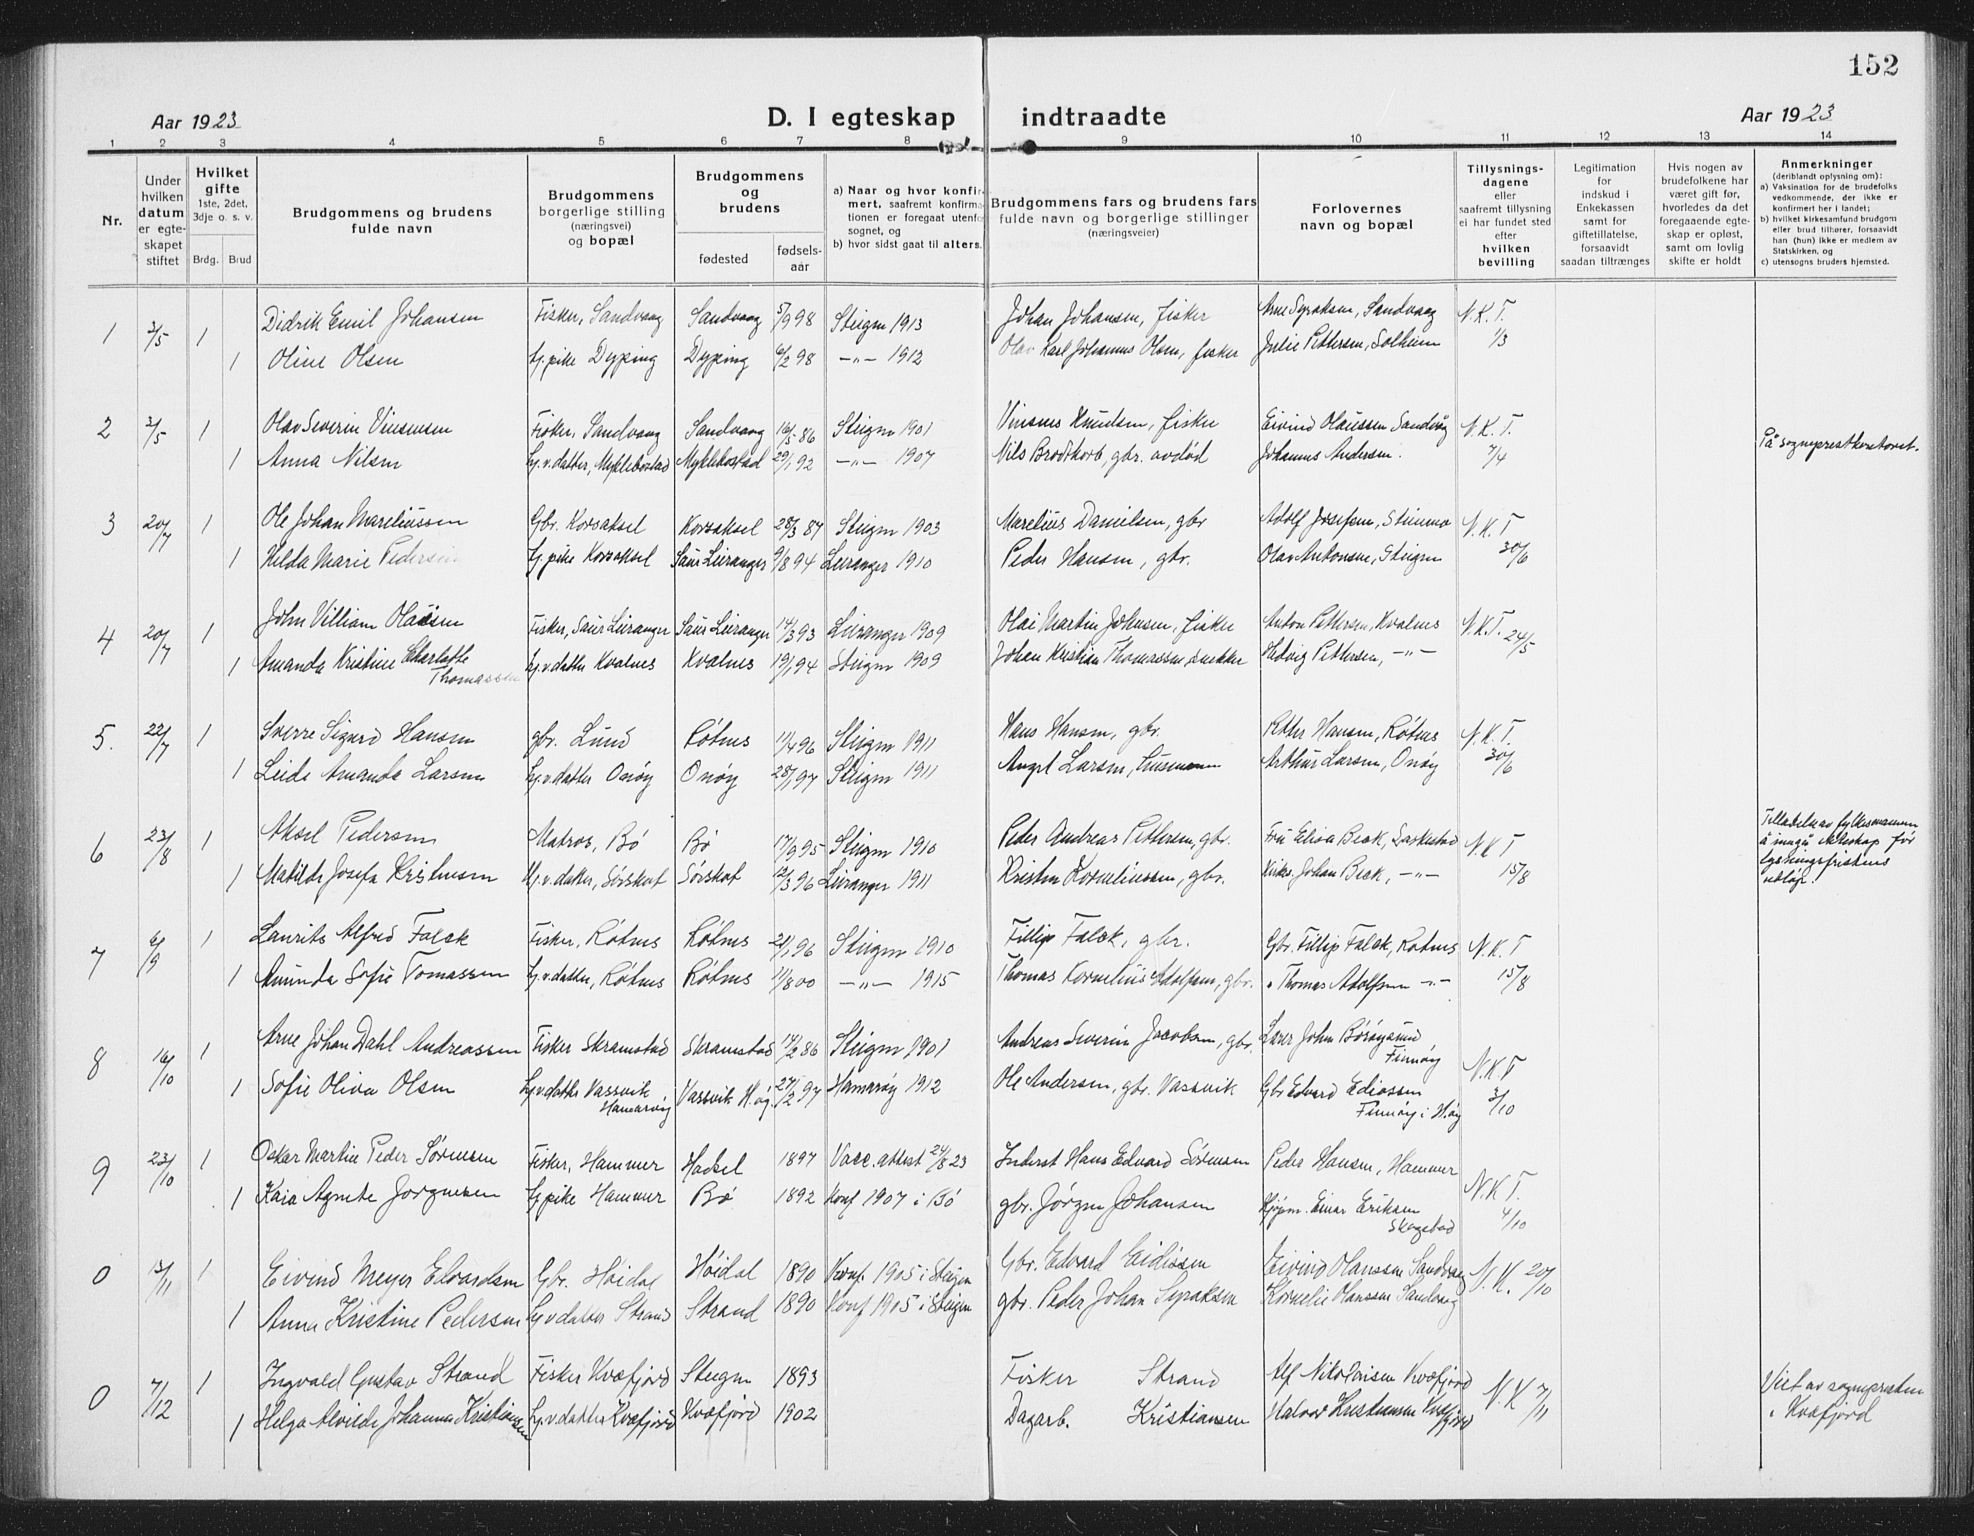 152
Aar 1923
D. I egteskap indtraadte
Aar 1923
1 2 3 4 5 6 7 8 9 10 11 12 13 14
Nr.
Under hvilken datum er egteskapet stiftet
Hvilket gifte 1ste, 2det, 3dje o. s. v.
Brdg. Brud
Brudgommens og brudens fulde navn
Brudgommens borgerlige stilling (næringsvei) og bopæl
Brudgommens og brudens
fødested
fødselsaar
a) Naar og hvor konfirmert, saafremt konfirmationen er foregaat utenfor sognet, og
b) hvor sidst gaat til alters.
Brudgommens fars og brudens fars fulde navn og borgerlige stillinger (næringsveier)
Forlovernes navn og bopæl
Tillysningsdagene eller saafremt tillysning ei har fundet sted efter hvilken bevilling
Legitimation for indskud i Enkekassen samt for giftetillatelse, forsaavidt saadan tiltrænges
Hvis nogen av brudefolkene har været gift før, hvorledes da det foregaaende egteskap er opløst, samt om lovlig skifte er holdt
Anmerkninger (deriblandt oplysning om):
a) Vaksination for de brudefolks vedkommende, der ikke er konfirmert her i landet;
b) hvilket kirkesamfund brudgom eller brud tilhører, forsaavidt han (hun) ikke er medlem av Statskirken, og
c) utensogns bruders hjemsted.
1 3/5 1 Didrik Emil Johansen Fisker, Sandvaag Sandvaag 5/9 98 Steigen 1913 Johan Johansen, fisker Arne Syraksen, Sandvaag N.K.T.
1 Oline Olsen Hj.pike Dyping Dyping 6/2 98 —"— 1912 Olav Karl Johannes Olsen, fisker Julie Pettersen, Solheim 1/3
2 3/5 1 Olav Severin Vinsensen Fisker, Sandvaag Sandvaag 16/5 86 Steigen 1901 Vinsens Knudsen, fisker Eivind Olaussen Sandvåg N.K.T. På sogneprestkontoret.
1 Anna Nilsen Hj.v.datter, Myklebostad Myklebostad 29/1 92 —"— 1907 Nils Brodtkorb, gbr. avdød Johannes Andersen. 7/4
3 20/7 1 Ole Johan Mareliussen Gbr. Korsaksel Korsaksel 28/3 87 Steigen 1903 Marelius Danielsen, gbr Adolf Josefsen, N.K.T
1 Hilda Marie Pedersen Hj.pike Korsaksel Saur Leiranger 9/8 94 Leiranger 1910 Peder Hansen, gbr. Olav Antonsen, Steigen 30/6
4 20/7 1 John Villiam Olaisen Fisker, Saur Leiranger Saur Leiranger 14/3 93 Leiranger 1909 Olai Martin Johnsen, fisker Anton Pettersen, Kvalnes N.K.T. 24/5
1 Amanda Kristine Charlotte Thomassen Hj.v.datter Kvalnes Kvalnes 19/1 94 Steigen 1909 Johan Kristian Thomassen snekker Hedvig Pettersen, —"—
5. 22/7 1 Sverre Sigurd Hansen gbr. Lund Røtnes 11/4 96 Steigen 1911 Hans Hansen, gbr. Petter Hansen, Røtnes N.K.T.
1 Leide Amanda Larsen Hj.v.datter Onøy Onøy 28/1 97 Steigen 1911 Angel Larsen, Arthur Larsen, Onøy 30/6
6 23/8 1 Aksel Pedersen Matros, Bø Bø 17/9 95 Steigen 1910 Peder Andreas Pettersen, gbr. Fru Elisa Beck, N.K.T Tilladelse av fylkesmannen å inngå ekteskap før lysningsfristens utløp.
1 Matilde Josefa Kristensen Hj.v.datter, Sørskot Sørskot 2/3 96 Leiranger 1911 Kristen Korneliussen, gbr. Kirkes. Johan Beck, —"— 15/8
7 6/9 1 Laurits Alfred Falck Fisker, Røtnes Røtnes 21/1 96 Steigen 1910 Fillip Falck, gbr. Gbr. Fillip Falck, Røtnes N.K.T
1 Amunda Sofie Tomassen Hj.v.datter, Røtnes Røtnes 11/8 00 —"— 1915 Thomas Kornelius Adolfsen, gbr. " Thomas Adolfsen —"— 15/8
8 16/10 1 Arne Johan Dahl Andreassen Fisker Skramstad Skramstad 14/2 86 Steigen 1901 Andreas Severin Jacobsen, gbr. Lærer John Børøysund Finnøy N.K.T
1 Sofie Oliva Olsen Hj.v.datter Vassvik Hamarøy Vassvik H.øy 27/2 97 Hamarøy 1912 Ole Andersen, gbr. Vassvik Gbr Edvard Ediassen Finnøy i H.øy 3/10
9 23/10 1 Oskar Martin Peder Sørensen Fisker, Hammer Hadsel 1897 Vacc. attest 24/8 23 Inderst Hans Edvard Sørensen Peder Hansen, Hammer N.K.T.
1 Kaia Agnete Jørgensen Hj.pike Hammer Bø 1892 Konf 1907 i Bø gbr. Jørgen Johansen Kjøpm. Einar Eriksen Skagstad 4/10
0 13/11 1 Eivind Meyer Edvardsen Gbr. Høidal Høidal 1890 Konf. 1905 i Steigen Gbr. Edvard Eidissen Eivind Olaussen Sandvåg N.K. 20/10
1 Anna Kristine Pedersen Hj.v.datter Strand Strand 1890 Konf 1905 i Steigen gbr. Peder Johan Syraksen Kornelie Olaussen Sandvåg
0 7/12 1 Ingvald Gustav Strand Fisker Kvæfjord Steigen 1893 Fisker Strand Alf Nikolaisen Kvæfjord N.K 7/11 Viet av sognepresten i Kvæfjord
1 Helga Alvilde Johanna Kristiansen Hj.v.datter Kvæfjord Kvæfjord 1902 Dagarb. Kristiansen Halvor Kristiansen Kvæfjord